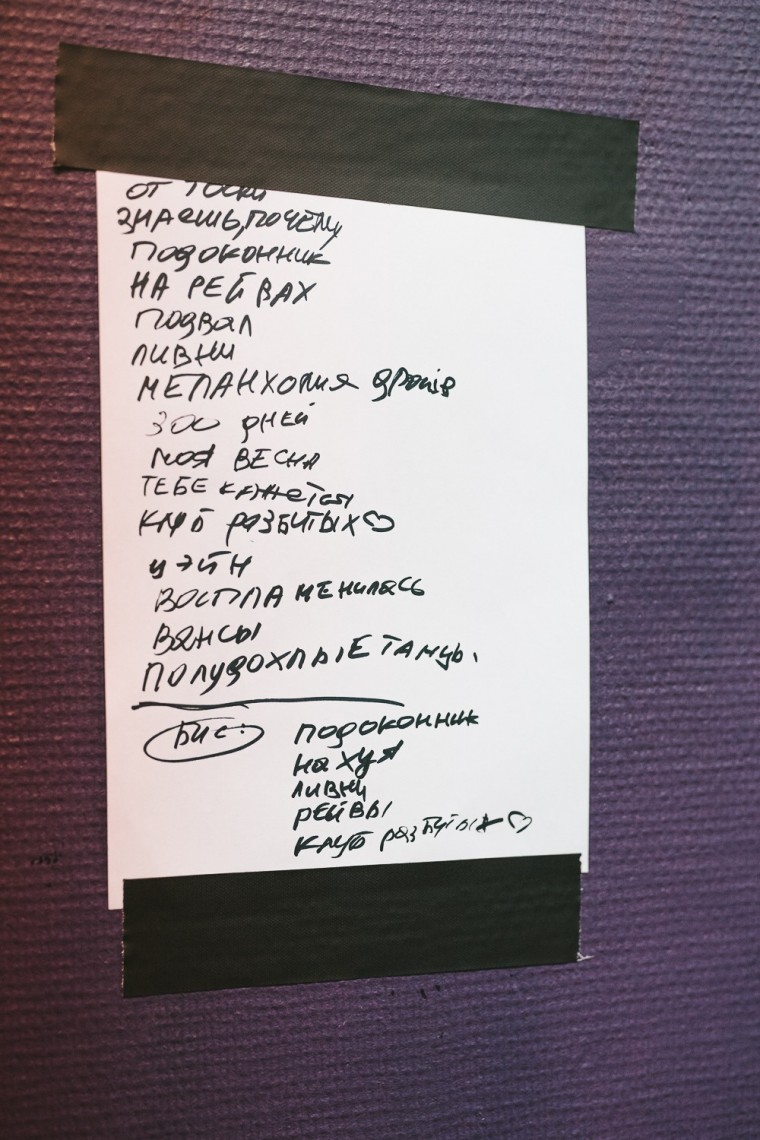 ОТ ТОСКИ
ЗНАЕШЬ, ПОЧЕМУ
ПОДОКОННИК
НА РЕЙВАХ
ПОДВАЛ
ЛИВНИ
МЕЛАНХОЛИЯ
300 ДНЕЙ
МОЯ ВЕСНА
ТЕБЕ КАЖЕТСЯ
КЛУБ РАЗБИТЫХ♡
УЭЙН
ВОСПЛАМЕНИЛАСЬ
ВАНСЫ
ПОЛУДОХЛЫЕ ТАНЦЫ.
БИС: ПОДОКОННИК
НАХУЯ
ЛИВНИ
РЕЙВЫ
КЛУБ РАЗБИТЫХ♡